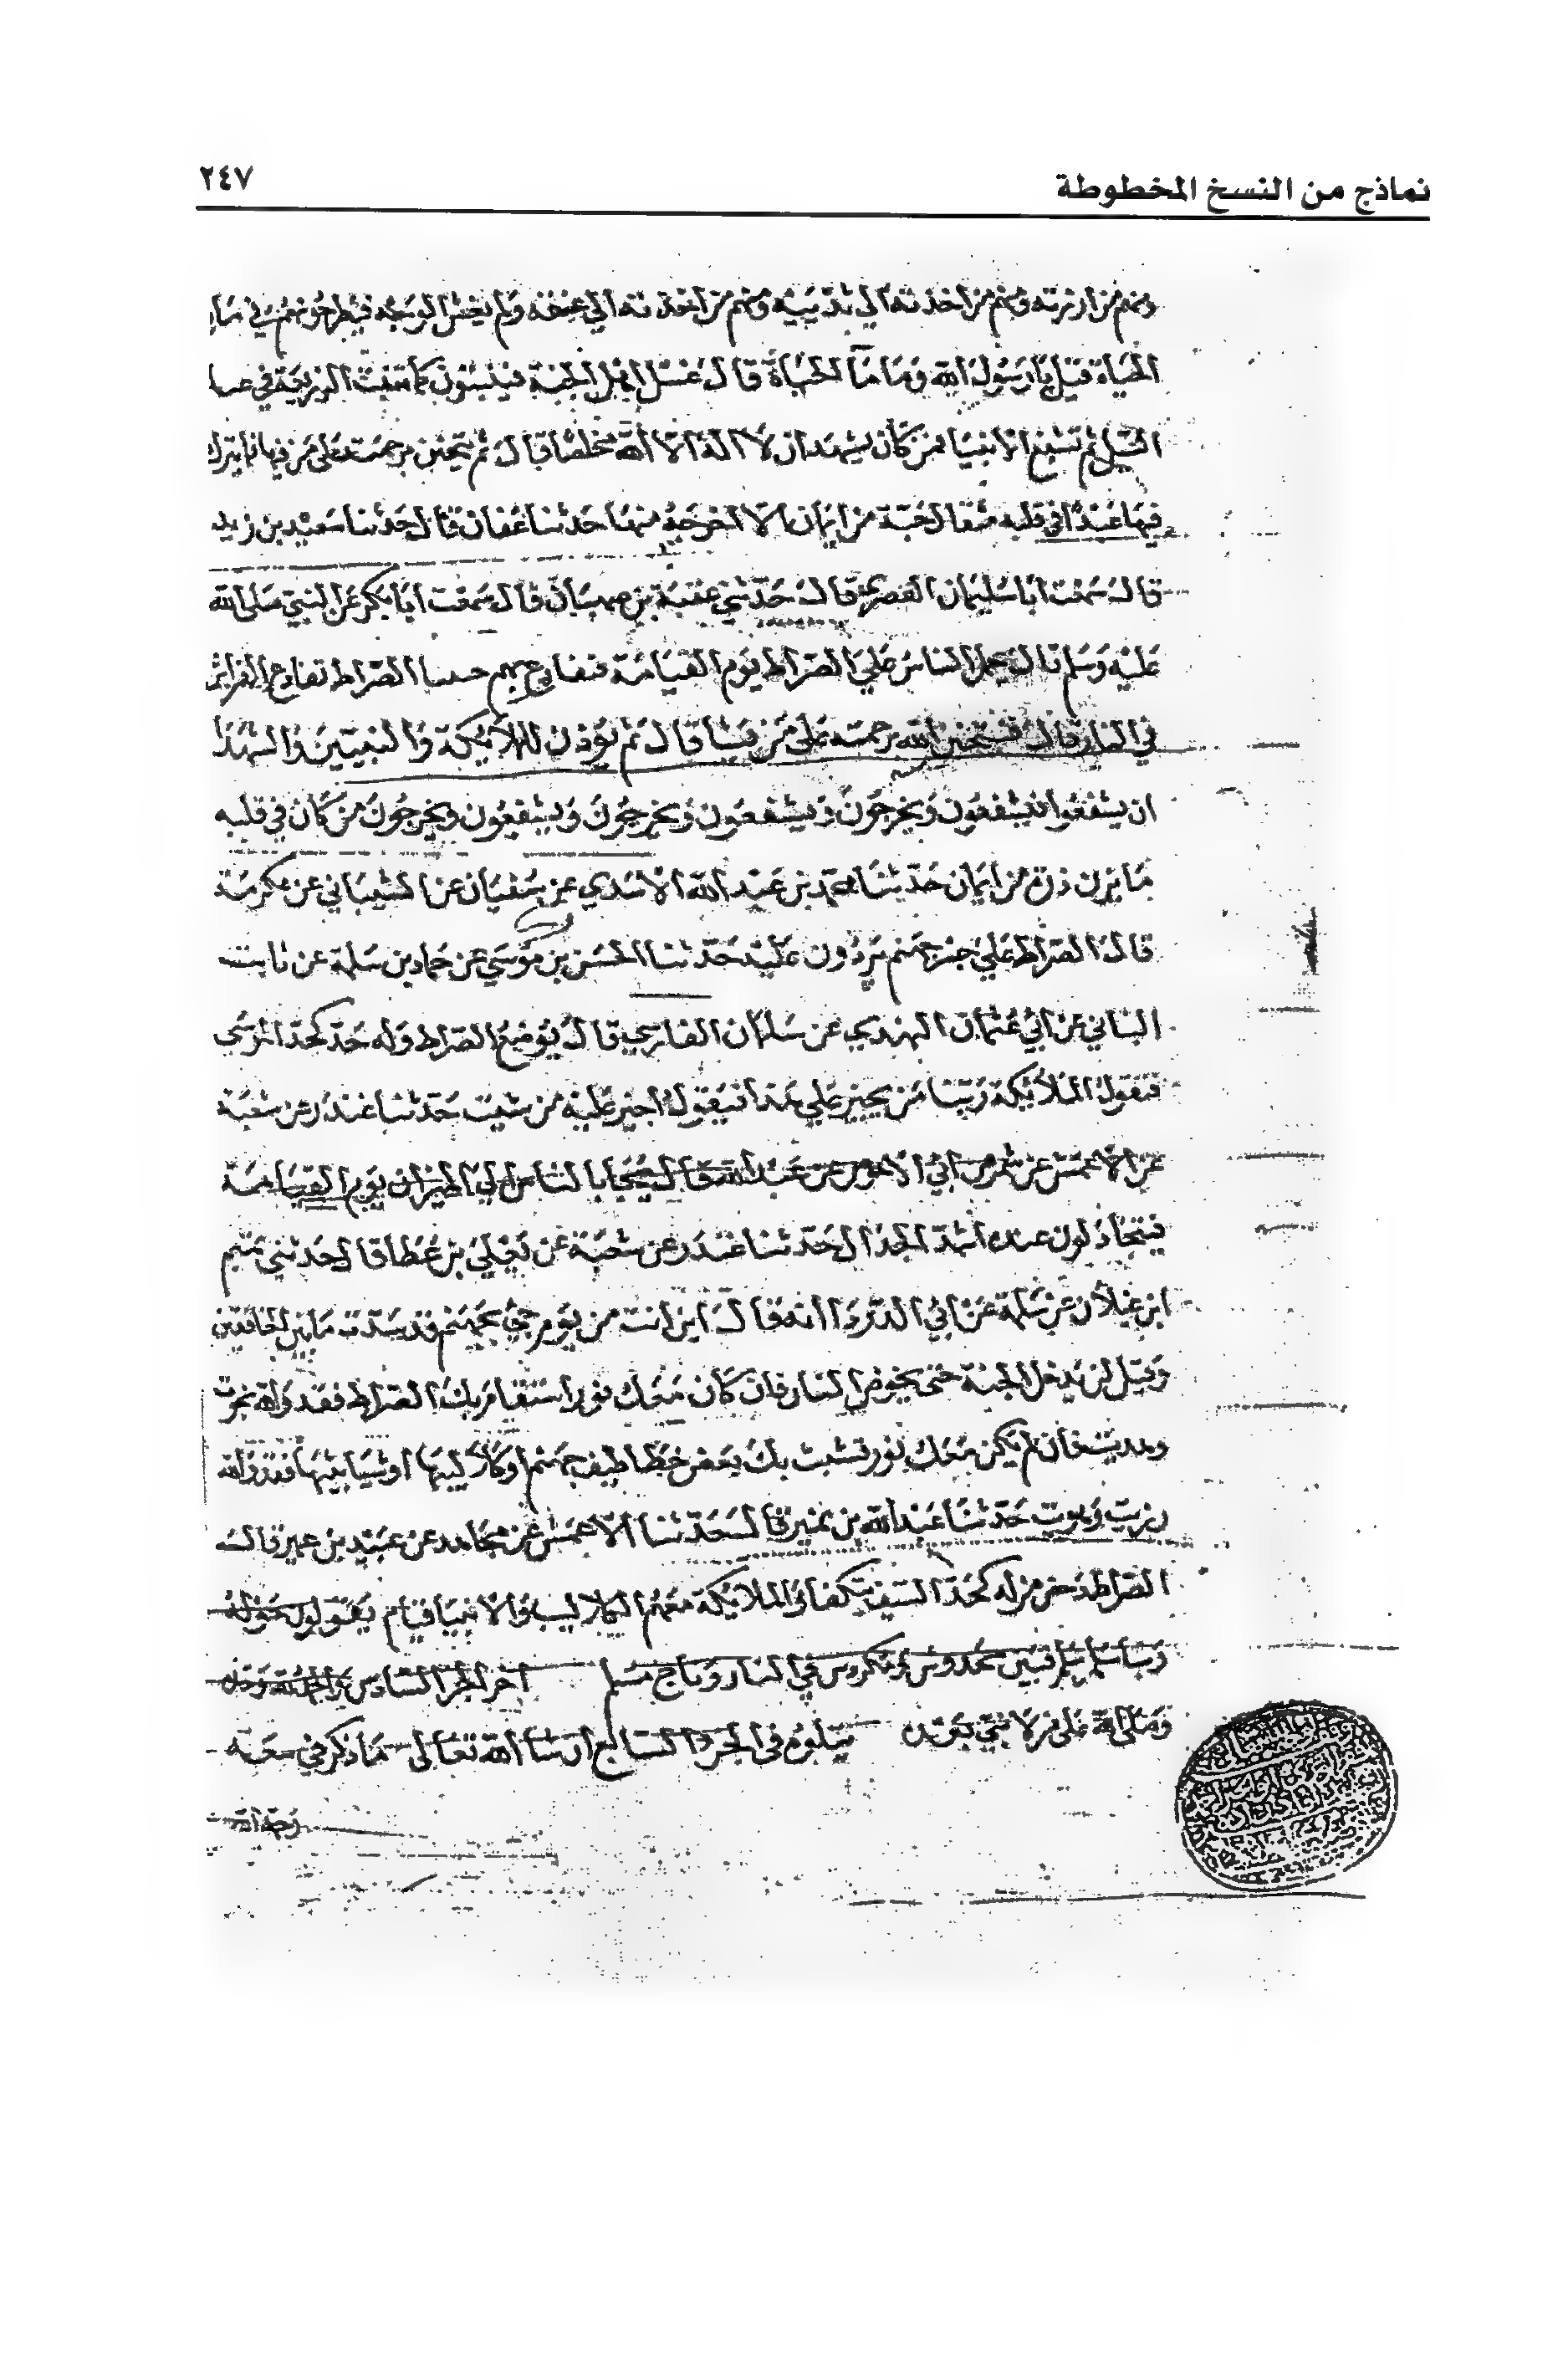 نماذج من النسخ المخطوطة
٢٤٧
ومنهم من ازرته ومنهم من اخذته الي ثدييه ومنهم من اخذته الي عنقه ولم يغش الوجه فيطرحونهم في ما
الحياة قيل يا رسول الله وما ما الحياة قال غسل اهل الجنة فينبتون كما تنبت الزريعة في
السيل ثم تشفع الانبيا ممن كان يشهد ان لا اله الا الله مخلصا قال ثم يتحنن برحمته على من فيها فما يترك
فيها عبدا في قلبه مثقال حبة من ايمان الا اخرجه منها حدثنا عفان قال حدثنا سعيد بن زيد
قال سمعت ابا سليمان العصري قال حدثني عقبة بن صهبان قال سمعت ابا بكرة عن النبي صلى الله
عليه وسلم قال يحمل الناس علي الصراط يوم القيامة فتقادع بهم الصراط تقادع الفراش
في النار قال فينجي الله برحمته على من يشا قال ثم يؤذن للملائكة والنبيين والشهدا
ان يشفعوا فيشفعون ويخرجون ويشفعون ويخرجون ويشفعون ويخرجون من كان في قلبه
ما يزن ذرة من ايمان حدثنا محمد بن عبد الله الاسدي عن سفيان عن الشيباني عن عكرمة
قال الصراط علي جسر جهنم يردون عليه حدثنا الحسن بن موسي عن حماد بن سلمة عن ثابت
البناني عن ابي عثمان النهدي عن سلمان الفارسي قال يوضع الصراط وله حد كحد الموسى
فتقول الملائكة ربنا من يجيز علي هذا فيقول اجيز عليه من شيت حدثنا غندر عن شعبة
عن الاعمش عن شمر عن ابي الاحوص عن عبد الله قال يجا بالناس الي الميزان يوم القيامة
فيتجادلون عنده اشد الجدال حدثنا غندر عن شعبة عن يعلي بن عطا قال حدثني تميم
ابن غيلان بن سلمة عن ابي الدردا انه قال اين انت من يوم جئ بجهنم قد سدت ما بين الخافقين
وقيل لن تدخل الجنة حتى تخوض النار فان كان معك نور استقام بك الصراط فقد والله نجوت
وهديت فان لم يكن معك نور تشبث بك بعض خطاطيف جهنم او كلاليبها او شبابيثها فقد والله
رديت وهويت حدثنا عبد الله بن نمير قال حدثنا الاعمش عن مجاهد عن عبيد بن عمير قال
الصراط دحض مزلة كحد السيف يتكفا والملائكة معهم الكلاليب والانبيا قيام يقولون حوله
ربنا سلم سلم فبين مخدوش ومكردس في النار وناج مسلم اخر الجز السادس والحمد لله وحده
وصلى الله على من لا نبي بعده يتلوه في الجزو السابع ان شا الله تعالى ما ذكر في سعة
رحمة الله